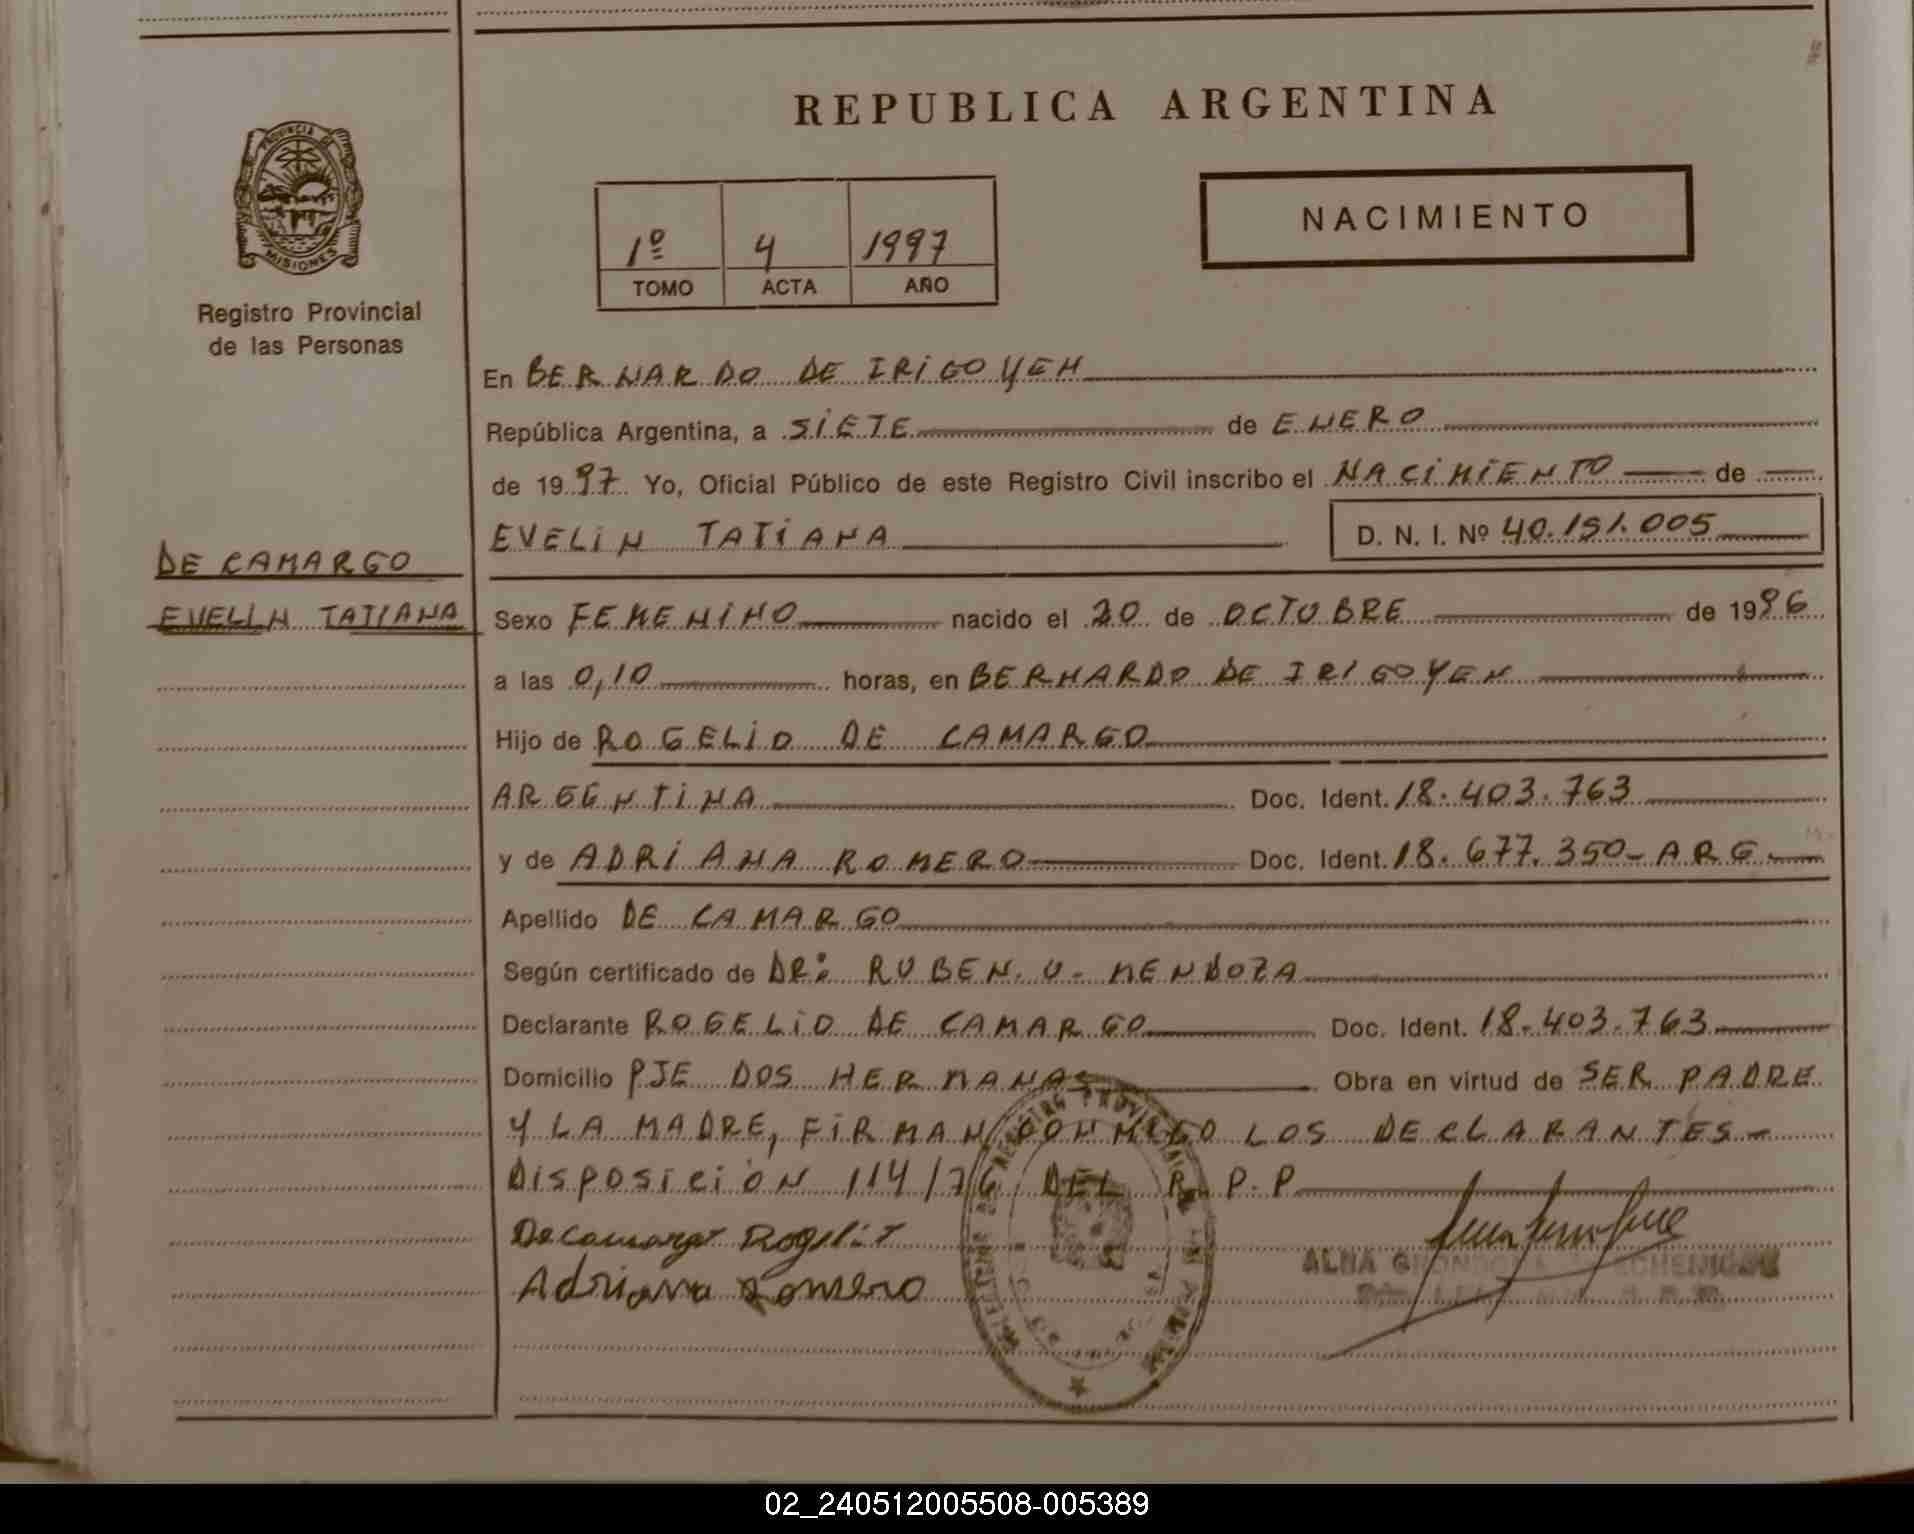 REPUBLICA ARGENTINA
PROVINCIA DE
MISIONES
Registro Provincial
de las Personas
NACIMIENTO
1º 4 1997
TOMO ACTA AÑO
En BERNARDO DE IRIGOYEN
República Argentina, a SIETE de ENERO
de 1997 Yo, Oficial Público de este Registro Civil inscribo el NACIMIENTO de
EVELIN TATIANA D. N. I. Nº 40.151.005
DE CAMARGO
EVELIN TATIANA
Sexo FEMENINO nacido el 20 de OCTUBRE de 1996
a las 0,10 horas, en BERNARDO DE IRIGOYEN
Hijo de ROGELIO DE CAMARGO
ARGENTINA Doc. Ident. 18.403.763
y de ADRIANA ROMERO Doc. Ident. 18.677.350-ARG-
Apellido DE CAMARGO
Según certificado de DR: RUBEN. U- MENDOZA
Declarante ROGELIO DE CAMARGO Doc. Ident. 18-403.763
Domicilio PJE DOS HERMANAS Obra en virtud de SER PADRE
Y LA MADRE, FIRMAN CONMIGO LOS DECLARANTES-
DISPOSICIÓN 114/76 DEL R.P.P
Decamargo Rogelio
Adriana Romero
ALBA
02_240512005508-005389